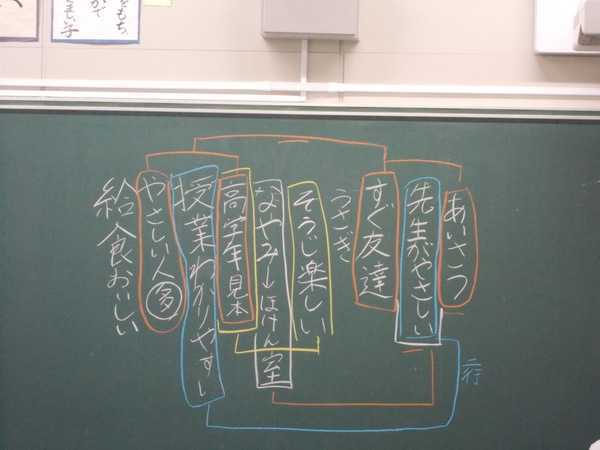 あいさつ
先生がやさしい
二行
すぐ友達
うさぎ
そうじ楽しい
なやみ→ほけん室
高学年見本
授業わかりやすい
やさしい人多
給食おいしい